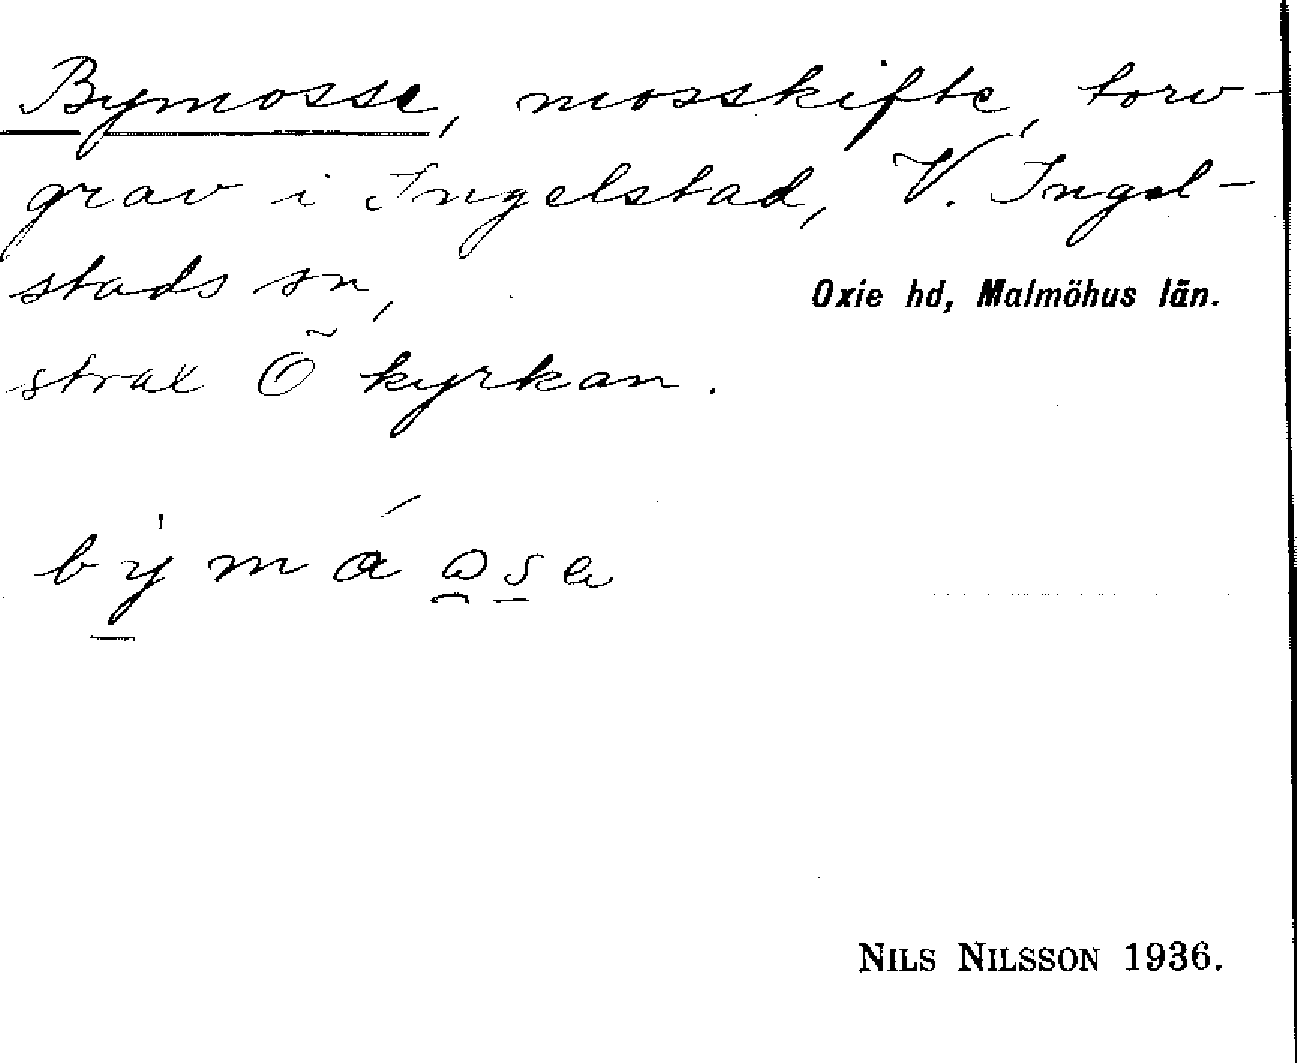 Bymosse, mosskifte, torv-
grav i Ingelstad, V. Ingel-
stads sn,
Oxie hd, Malmöhus län.
strax Ö kyrkan.
NILS NILSSON 1936.